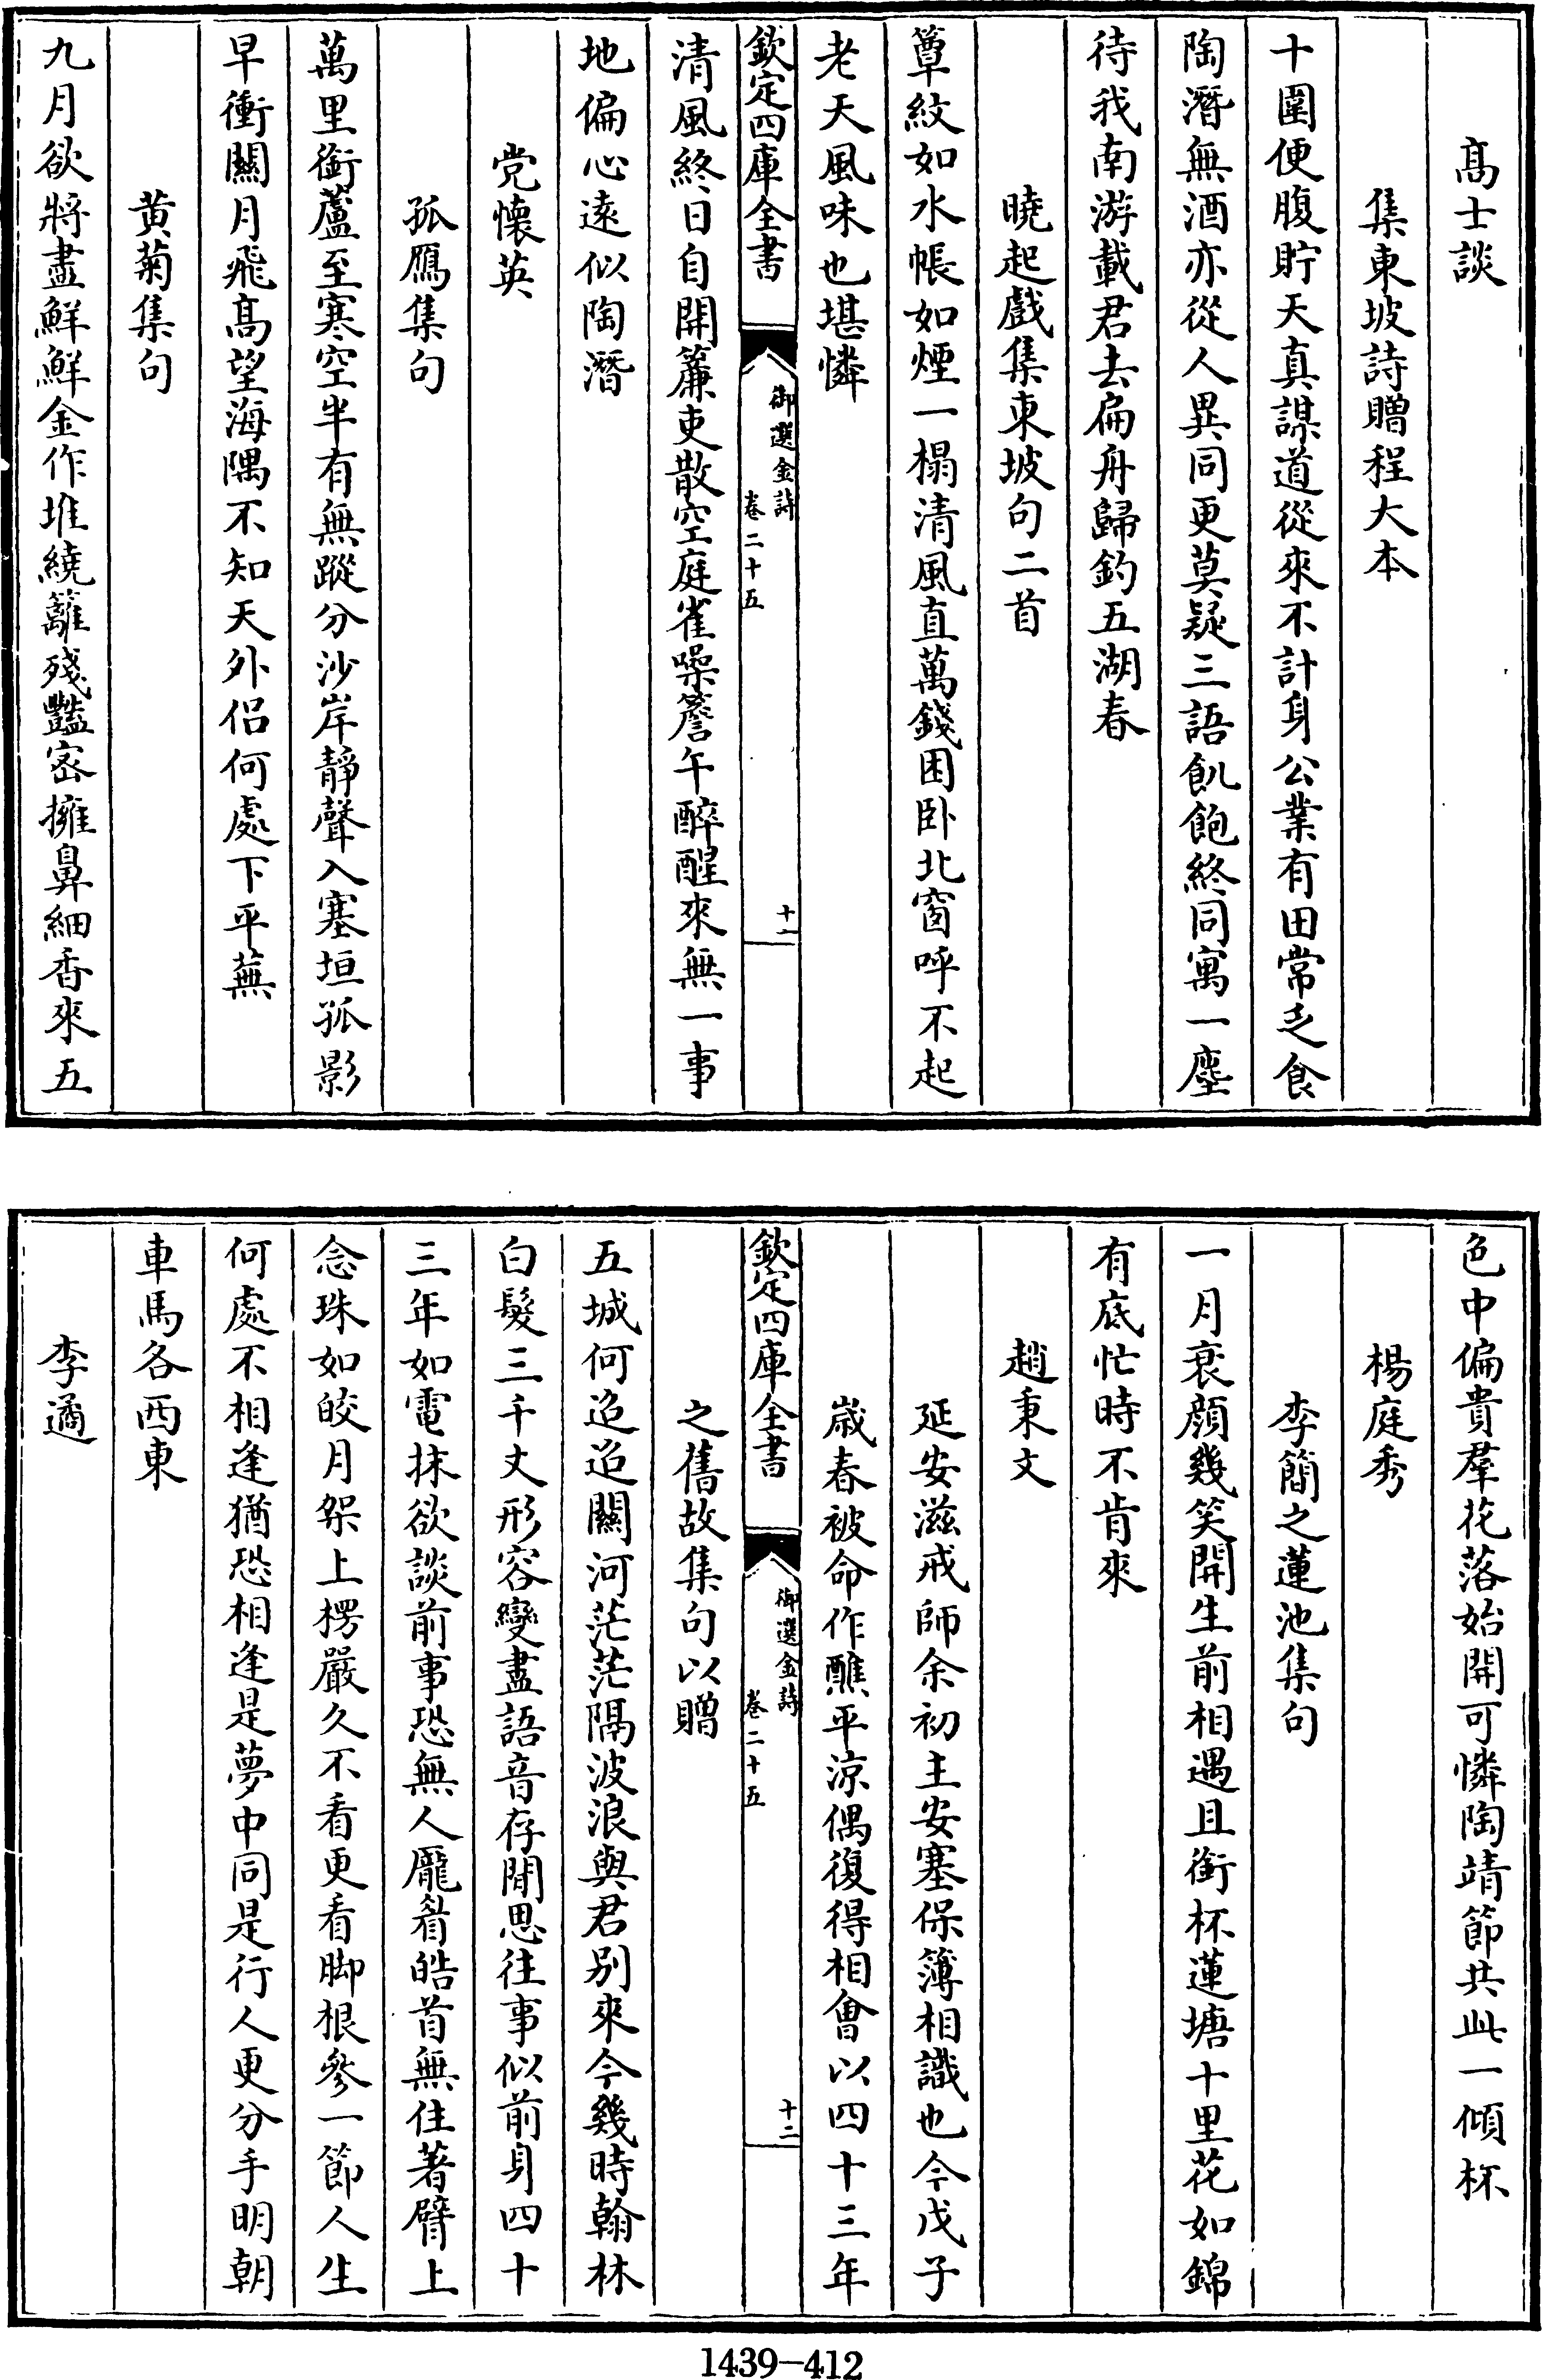 高士談
集東坡詩贈程大本
十圍便腹貯天真謀道從來不計身公業有田常乏食
陶潛無酒亦從人異同更莫疑三語飢飽終同寓一塵
待我南游載君去扁舟歸釣五湖春
曉起戲集東坡句二首
簟紋如水帳如煙一榻清風直萬錢困卧北窗呼不起
老天風味也堪憐
欽定四庫全書
御選金詩
卷二十五
十一
清風終日自開簾吏散空庭雀噪簷午醉醒來無一事
地偏心遠似陶潛
党懷英
孤鴈集句
萬里銜蘆至寒空半有無蹤分沙岸靜聲入塞垣孤影
早衝關月飛高望海隅不知天外侶何處下平蕪
黄菊集句
九月欲將盡鮮鮮金作堆繞籬殘豔密擁鼻細香來五
色中偏貴羣花落始開可憐陶靖節共此一傾杯
楊庭秀
李簡之蓮池集句
一月衰顔幾笑開生前相遇且銜杯蓮塘十里花如錦
有底忙時不肯來
趙秉文
延安滋戒師余初主安塞保簿相識也今戊子
歲春被命作醮平涼偶復得相會以四十三年
欽定四庫全書
御選金詩
卷二十五
十二
之舊故集句以贈
五城何迢迢關河茫茫隔波浪與君别來今幾時翰林
白髮三千丈形容變盡語音存閒思往事似前身四十
三年如電抹欲談前事恐無人龎眉皓首無住著臂上
念珠如皎月架上楞嚴久不看更看脚根參一節人生
何處不相逢猶恐相逢是夢中同是行人更分手明朝
車馬各西東
李遹
1439-412